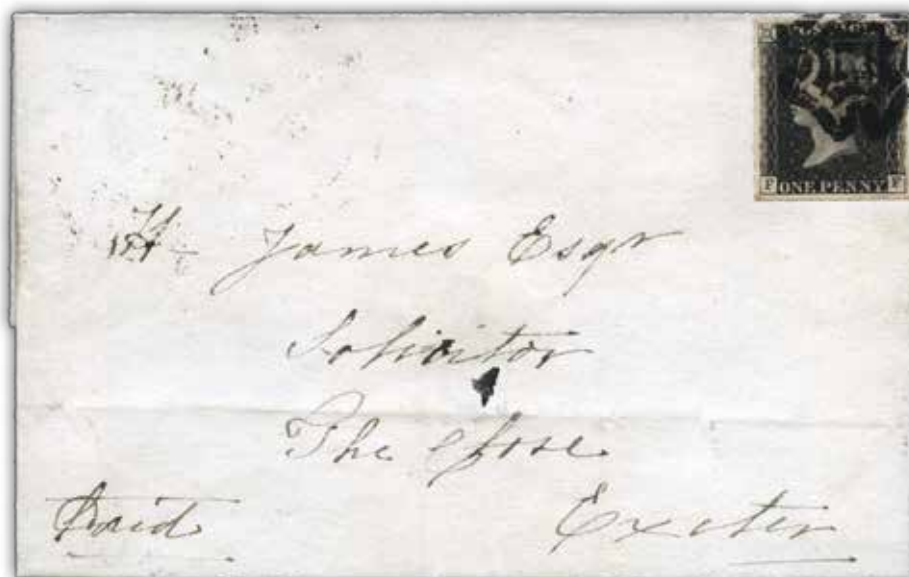 F ONE PENNY F
James Esqr
Solicitor
The Close
Paid
Exeter